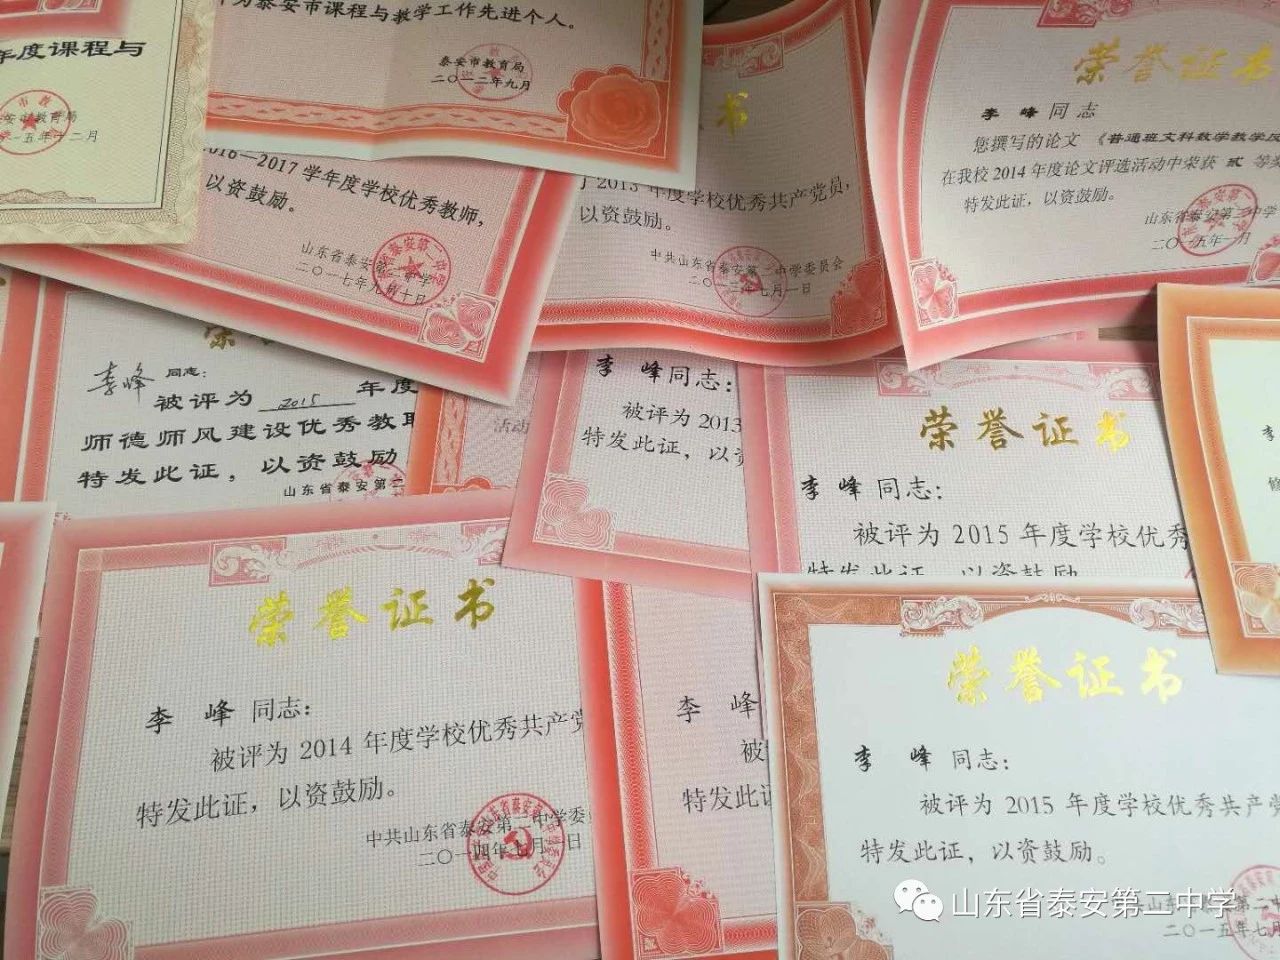 年度课程与
安市教育局
一五年十二月
为泰安市课程与教学工作先进个人。
泰安市教育局
二〇一二年九月
2016—2017学年度学校优秀教师，
以资鼓励。
山东省泰安第二中学
二〇一七年九月十日
证书
2013年度学校优秀共产党员，
以资鼓励。
中共山东省泰安第二中学委员会
二〇一三年七月一日
荣誉证书
李峰同志
您撰写的论文《普通班文科数学教学反
在我校2014年度论文评选活动中荣获 贰 等奖
特发此证，以资鼓励。
山东省泰安第二中学
二〇一五年一月
荣
李峰同志：
被评为 2015 年度
师德师风建设优秀教职
特发此证，以资鼓励
山东省泰安第二
活动
李 峰同志：
被评为2013
特发此证，以资
荣誉证书
李 峰 同志：
被评为2015年度学校优秀
特发此证，以资鼓励
李
修
荣誉证书
李 峰 同志：
被评为2014年度学校优秀共产党
特发此证，以资鼓励。
中共山东省泰安第二中学委
二〇一四年七月一日
李 峰
被
特发此证
荣誉证书
李 峰 同志：
被评为2015年度学校优秀共产党
特发此证，以资鼓励。
中共山东省泰安第二中
二〇一五年七月
山东省泰安第二中学